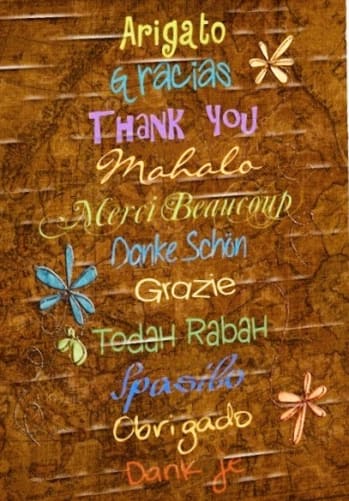 Arigato
Gracias
Thank You
Mahalo
Merci Beaucoup
Danke Schön
Grazie
Todah Rabah
Spasibo
Obrigado
Dank je